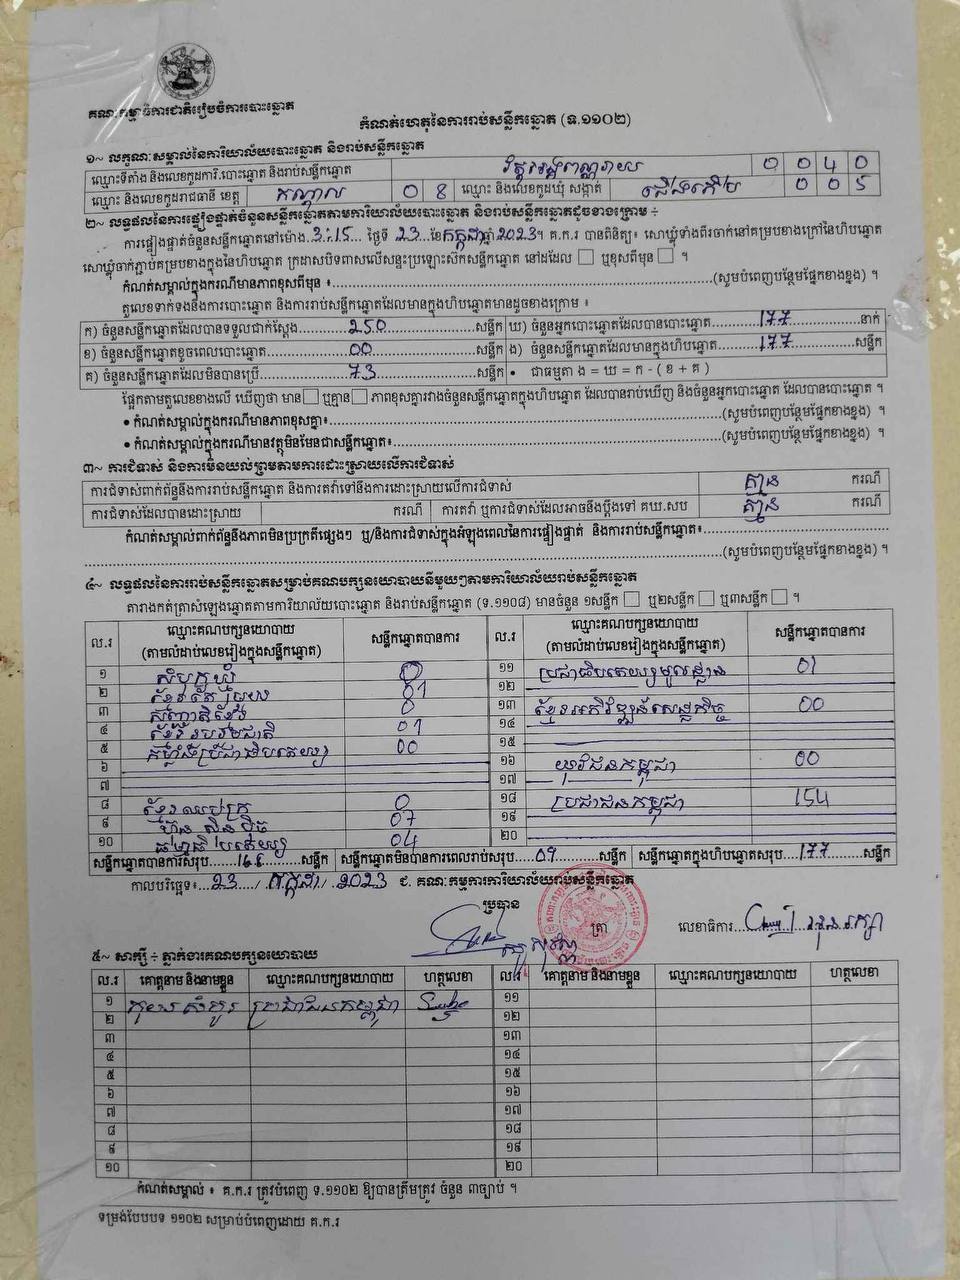 គណៈកម្មាធិការជាតិរៀបចំការបោះឆ្នោត
កំណត់ហេតុនៃការរាប់សន្លឹកឆ្នោត (ទ.១១០២)
១~ លក្ខណៈសម្គាល់នៃការិយាល័យបោះឆ្នោត និងរាប់សន្លឹកឆ្នោត
ឈ្មោះទីតាំង និងលេខកូដការិ.បោះឆ្នោត និងរាប់សន្លឹកឆ្នោត 0 0 4 0
ឈ្មោះ និងលេខកូដរាជធានី ខេត្ត កណ្តាល 0 8 ឈ្មោះ និងលេខកូដឃុំ សង្កាត់ ជើងកើប 0 0 5
២~ លទ្ធផលនៃការផ្ទៀងផ្ទាត់ចំនួនសន្លឹកឆ្នោតតាមការិយាល័យបោះឆ្នោត និងរាប់សន្លឹកឆ្នោតដូចខាងក្រោម ៖
ការផ្ទៀងផ្ទាត់ចំនួនសន្លឹកឆ្នោតនៅម៉ោង 3:15 ថ្ងៃទី 23 ខែកក្កដា ឆ្នាំ 2023។ គ.ក.រ បានពិនិត្យ៖ សោឃ្មុំទាំងពីរចាក់នៅគម្របខាងក្រៅនៃហិបឆ្នោត
សោឃ្មុំចាក់ភ្ជាប់គម្របខាងក្នុងនៃហិបឆ្នោត ក្រដាសបិទពាសលើសន្ទះប្រឡោះស៊កសន្លឹកឆ្នោត នៅដដែល ឬខុសពីមុន ។
កំណត់សម្គាល់ក្នុងករណីមានភាពខុសពីមុន ៖ (សូមបំពេញបន្ថែមផ្នែកខាងខ្នង) ។
តួលេខទាក់ទងនឹងការបោះឆ្នោត និងការរាប់សន្លឹកឆ្នោតដែលមានក្នុងហិបឆ្នោតមានដូចខាងក្រោម ៖
ក) ចំនួនសន្លឹកឆ្នោតដែលបានទទួលជាក់ស្តែង 250 សន្លឹក ឃ) ចំនួនអ្នកបោះឆ្នោតដែលបានបោះឆ្នោត 177 នាក់
ខ) ចំនួនសន្លឹកឆ្នោតខូចពេលបោះឆ្នោត 00 សន្លឹក ង) ចំនួនសន្លឹកឆ្នោតដែលមានក្នុងហិបឆ្នោត 177 សន្លឹក
គ) ចំនួនសន្លឹកឆ្នោតដែលមិនបានប្រើ 73 សន្លឹក • ជាធម្មតា ង = ឃ = ក - ( ខ + គ )
ផ្អែកតាមតួលេខខាងលើ ឃើញថា មាន ឬគ្មាន ភាពខុសគ្នារវាងចំនួនសន្លឹកឆ្នោតក្នុងហិបឆ្នោត ដែលបានរាប់ឃើញ និងចំនួនអ្នកបោះឆ្នោត ដែលបានបោះឆ្នោត ។
• កំណត់សម្គាល់ក្នុងករណីមានភាពខុសគ្នា៖ (សូមបំពេញបន្ថែមផ្នែកខាងខ្នង) ។
• កំណត់សម្គាល់ក្នុងករណីមានវត្ថុមិនមែនជាសន្លឹកឆ្នោត៖ (សូមបំពេញបន្ថែមផ្នែកខាងខ្នង) ។
៣~ ការជំទាស់ និងការមិនយល់ព្រមតាមការដោះស្រាយលើការជំទាស់
ការជំទាស់ពាក់ព័ន្ធនឹងការរាប់សន្លឹកឆ្នោត និងការតវ៉ាទៅនឹងការដោះស្រាយលើការជំទាស់ គ្មាន ករណី
ការជំទាស់ដែលបានដោះស្រាយ ករណី ការតវ៉ា ឬការជំទាស់ដែលអាចនឹងប្តឹងទៅ គឃ.សប គ្មាន ករណី
កំណត់សម្គាល់ពាក់ព័ន្ធនឹងភាពមិនប្រក្រតីផ្សេងៗ ឬ/និងការជំទាស់ក្នុងអំឡុងពេលនៃការផ្ទៀងផ្ទាត់ និងការរាប់សន្លឹកឆ្នោត៖
(សូមបំពេញបន្ថែមផ្នែកខាងខ្នង) ។
៤~ លទ្ធផលនៃការរាប់សន្លឹកឆ្នោតសម្រាប់គណបក្សនយោបាយនីមួយៗតាមការិយាល័យរាប់សន្លឹកឆ្នោត
តារាងកត់ត្រាសំឡេងឆ្នោតតាមការិយាល័យបោះឆ្នោត និងរាប់សន្លឹកឆ្នោត (ទ.១១០៨) មានចំនួន ១សន្លឹក ឬ២សន្លឹក ឬ៣សន្លឹក ។
ល.រ ឈ្មោះគណបក្សនយោបាយ (តាមលំដាប់លេខរៀងក្នុងសន្លឹកឆ្នោត) សន្លឹកឆ្នោតបានការ ល.រ ឈ្មោះគណបក្សនយោបាយ (តាមលំដាប់លេខរៀងក្នុងសន្លឹកឆ្នោត) សន្លឹកឆ្នោតបានការ
១ សំបុកឃ្មុំ 0 ១១ ប្រជាធិបតេយ្យមូលដ្ឋាន 01
២ ខ្មែរតែមួយ 01 ១២
៣ 0 ១៣ ខ្មែរអភិវឌ្ឍន៍សេដ្ឋកិច្ច 00
៤ ខ្មែររួបរួមជាតិ 01 ១៤
៥ កម្លាំងប្រជាធិបតេយ្យ 00 ១៥
៦ ១៦ យុវជនកម្ពុជា 00
៧ ១៧
៨ ខ្មែរឈប់ក្រ 0 ១៨ ប្រជាជនកម្ពុជា 154
៩ ហ៊្វុនស៊ិនប៉ិច 07 ១៩
១០ ធម្មាធិបតេយ្យ 04 ២០
សន្លឹកឆ្នោតបានការសរុប 168 សន្លឹក សន្លឹកឆ្នោតមិនបានការពេលរាប់សរុប 09 សន្លឹក សន្លឹកឆ្នោតក្នុងហិបឆ្នោតសរុប 177 សន្លឹក
កាលបរិច្ឆេទ៖ 23 / កក្កដា / 2023 ជ. គណៈកម្មការការិយាល័យរាប់សន្លឹកឆ្នោត
ប្រធាន ត្រា លេខាធិការ
៥~ សាក្សី ÷ ភ្នាក់ងារគណបក្សនយោបាយ
ល.រ គោត្តនាម និងនាមខ្លួន ឈ្មោះគណបក្សនយោបាយ ហត្ថលេខា ល.រ គោត្តនាម និងនាមខ្លួន ឈ្មោះគណបក្សនយោបាយ ហត្ថលេខា
១ ប្រជាជនកម្ពុជា ១១
២ ១២
៣ ១៣
៤ ១៤
៥ ១៥
៦ ១៦
៧ ១៧
៨ ១៨
៩ ១៩
១០ ២០
កំណត់សម្គាល់ ៖ គ.ក.រ ត្រូវបំពេញ ទ.១១០២ ឱ្យបានត្រឹមត្រូវ ចំនួន ៣ច្បាប់ ។
ទម្រង់បែបបទ ១១០២ សម្រាប់បំពេញដោយ គ.ក.រ